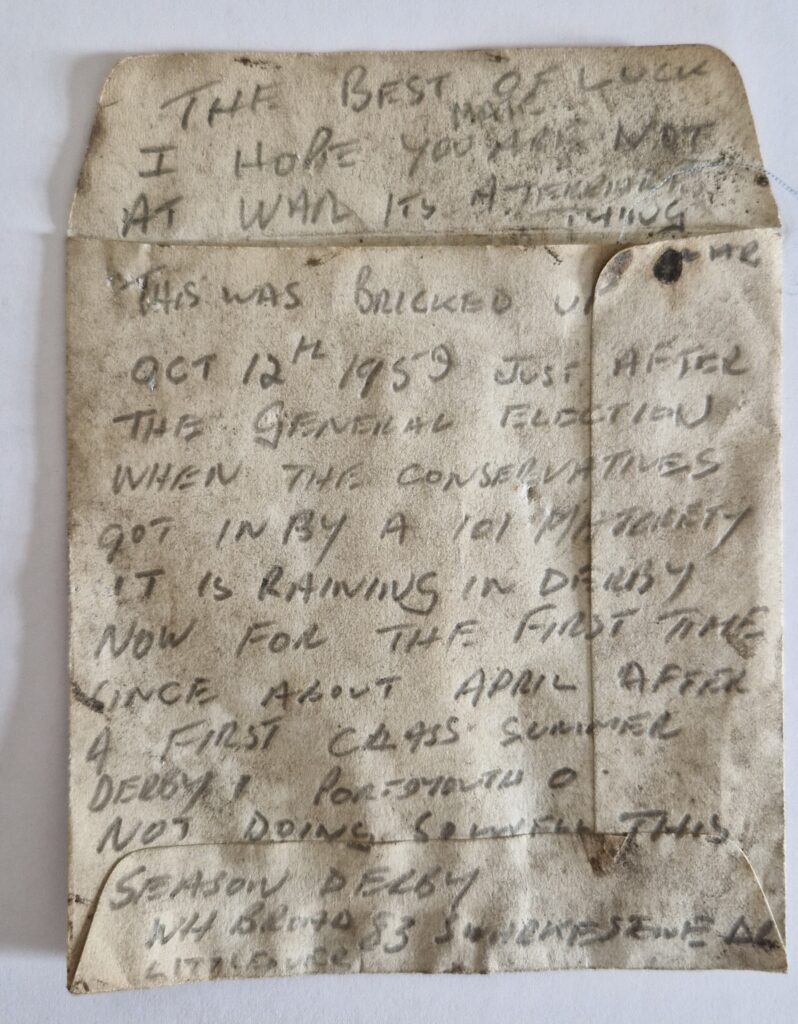 THE BEST OF LUCK
MATE
I HOPE YOU ARE NOT
AT WAR ITS A TERRIBLE
THING
WAR
THIS WAS BRICKED UP
OCT 12TH 1959 JUST AFTER
THE GENERAL ELECTION
WHEN THE CONSERVATIVES
GOT IN BY A 101
IT IS RAINING IN DERBY
NOW FOR THE FIRST TIME
SINCE ABOUT APRIL AFTER
A FIRST CLASS SUMMER
DERBY 1 PORTSMOUTH 0
NOT DOING SO WELL THIS
SEASON DERBY
WH BROAD 83
LITTLEOVER